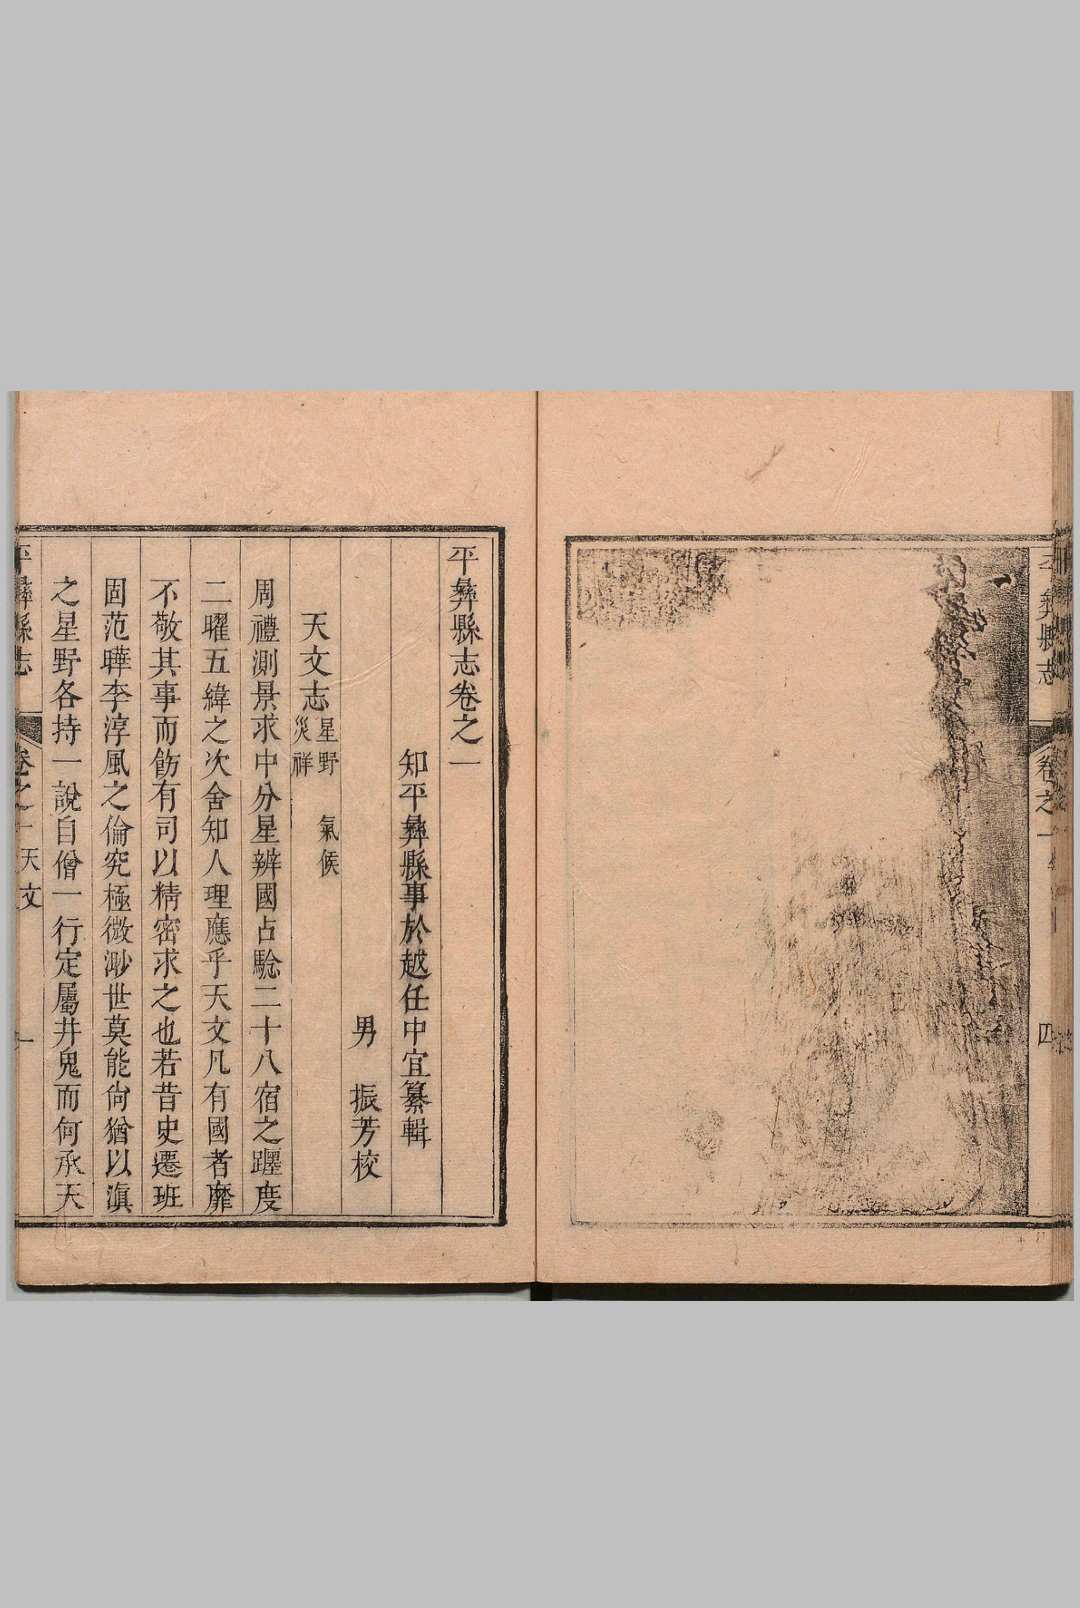 平彝縣志
卷之一
四
平彝縣志卷之一
知平彝縣事於越任中宜纂輯
男　振芳校
天文志
星野　氣候
災祥
周禮測景求中分星辨國占驗二十八宿之躔度
二曜五緯之次舍知人理應乎天文凡有國者靡
不敬其事而飭有司以精密求之也若昔史遷班
固范曄李淳風之倫究極微渺世莫能尙猶以滇
之星野各持一說自僧一行定屬井鬼而何承天
平彝縣志
卷之一天文
一